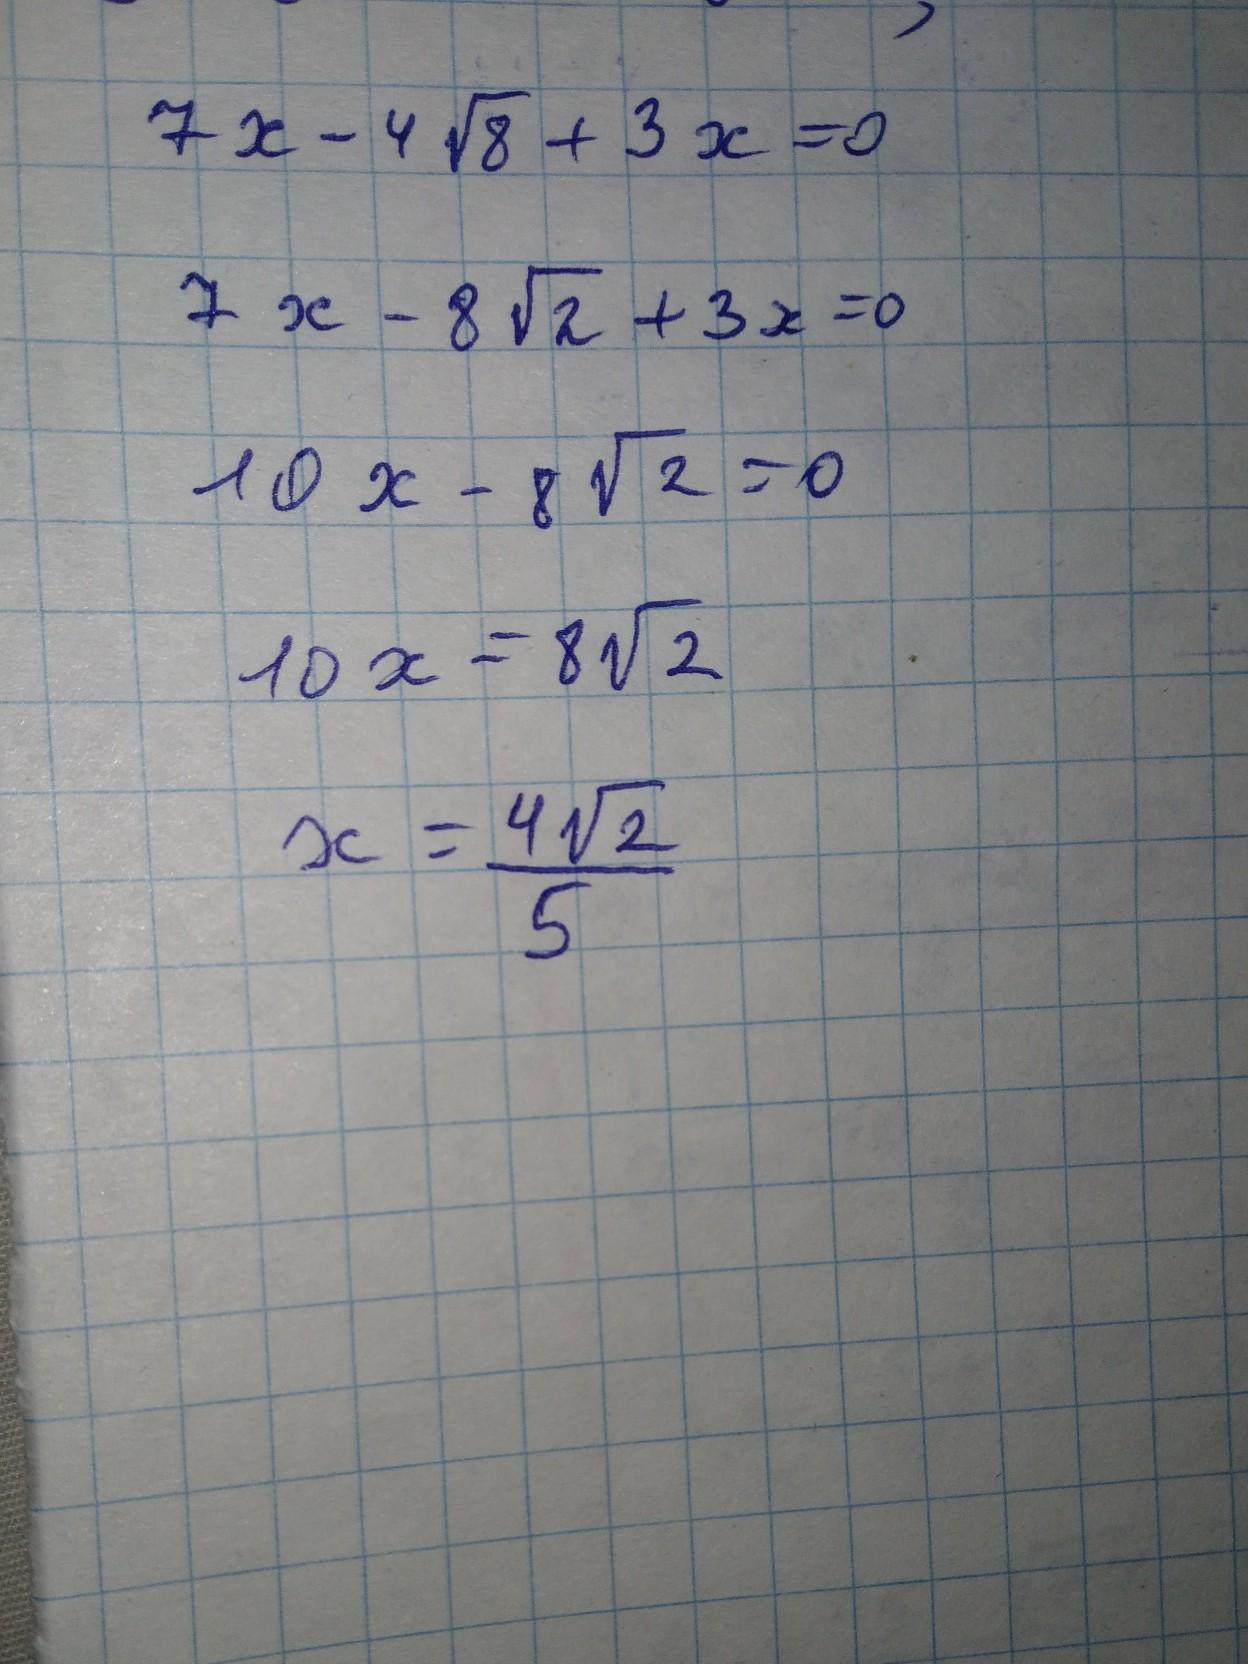 7x - 4√8 + 3x = 0
7x - 8√2 + 3x = 0
10x - 8√2 = 0
10x = 8√2
x = 4√2/5